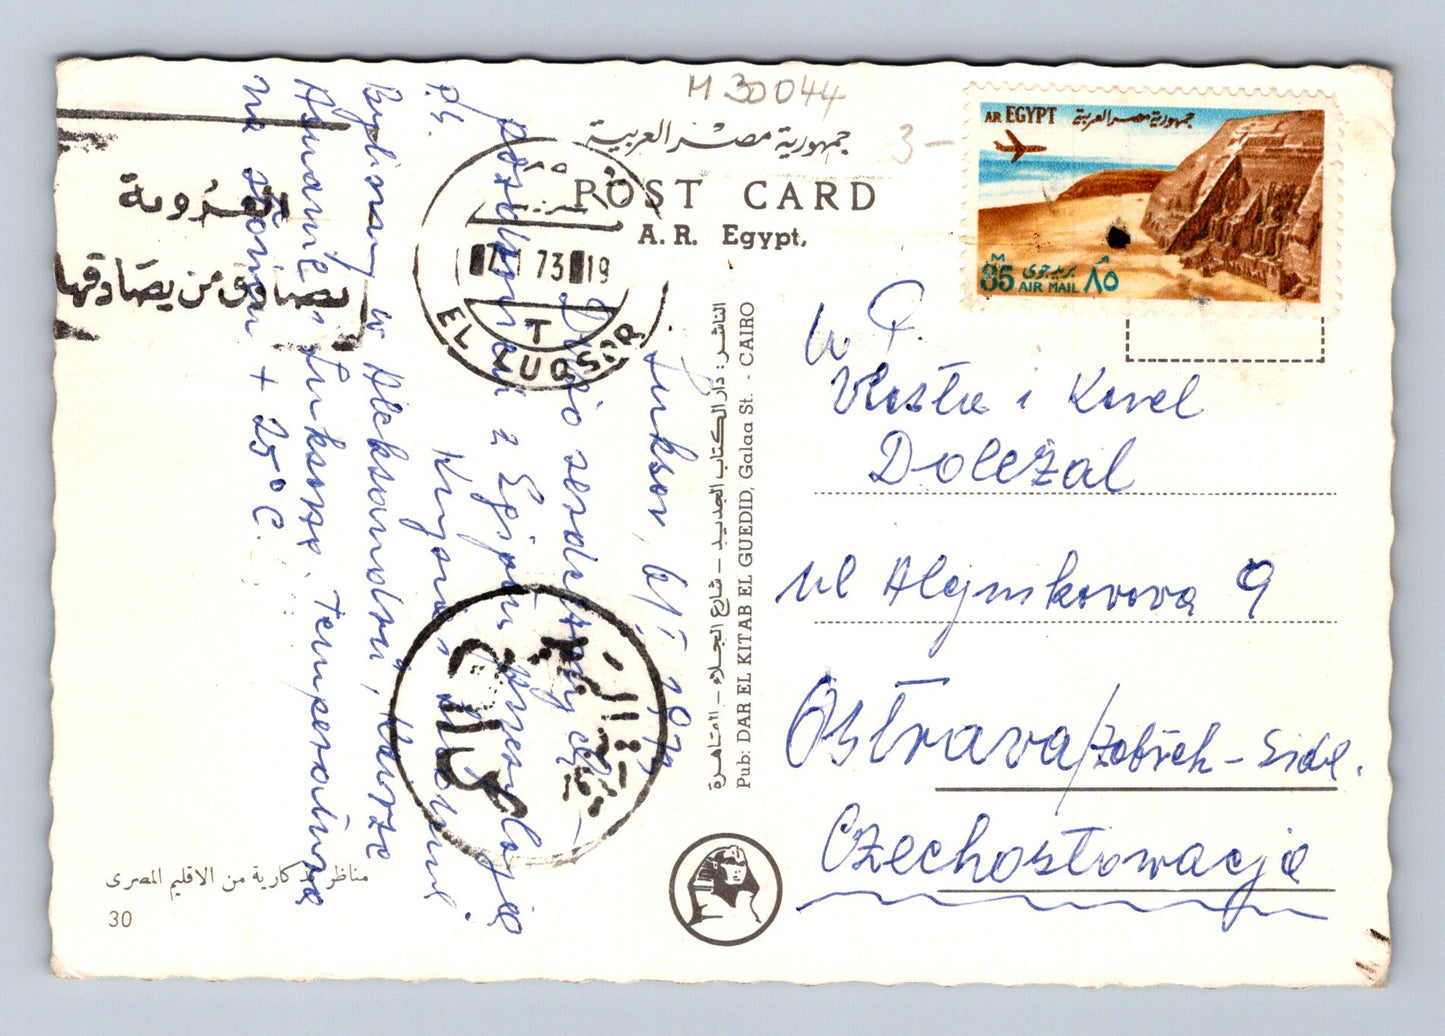 M 30044
3 -
جمهورية مصر العربية
POST CARD
A. R. Egypt,
AR EGYPT جمهورية مصر العربية
M 85 بريد جوى ٨٥
AIR MAIL
العروبة
تصادق من يصادقها
73 19
T
EL LUQSOR
Luksor, 6/I 1973
Dużo serdecznych
pozdrowień z Egiptu przesyłają
P.S.
Byliśmy w Aleksandrii, Kairze
Asuanie i Luksorze. Temperatura
na słońcu + 25°C.
W P.
Vlasta i Karel
Doležal
ul Alejnikovova 9
Ostrava/Zábřeh - Sídl.
Czechosłowacja
الناشر: دار الكتاب الجديد - شارع الجلاء - القاهرة
Pub: DAR EL KITAB EL GUEDID, Galaa St. - CAIRO
مناظر تذكارية من الاقليم المصرى
30